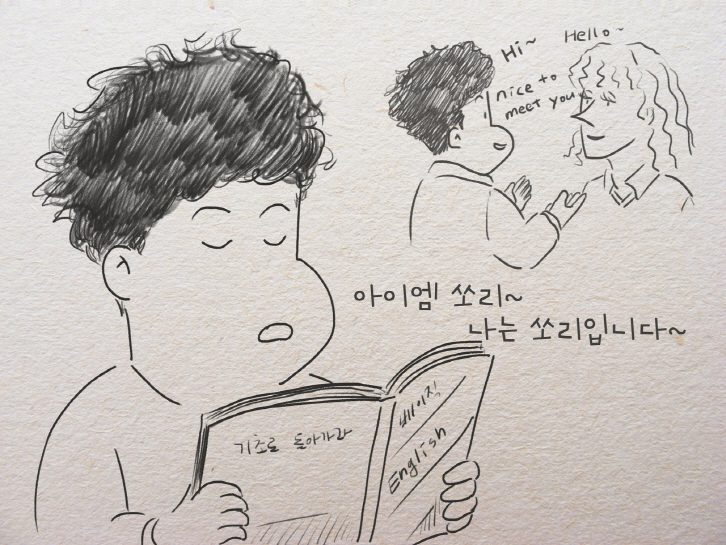 Hi~
Hello~
nice to
meet you
아이엠 쏘리~
나는 쏘리입니다~
기초로 돌아가라
베이직
English